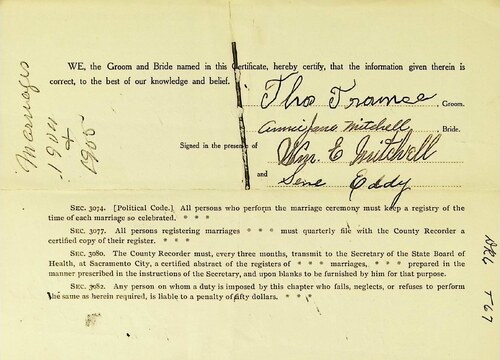 WE, the Groom and Bride named in this Certificate, hereby certify, that the information given therein is
correct, to the best of our knowledge and belief.
Thos Groom.
Annie Jane Mitchell Bride.
Signed in the presence of Wm. E Mitchell
and
Gene Eddy
SEC. 3074. [Political Code.] All persons who perform the marriage ceremony must keep a registry of the
time of each marriage so celebrated. * * *
SEC. 3077. All persons registering marriages * * * must quarterly file with the County Recorder a
certified copy of their register. * * *
SEC. 3080. The County Recorder must, every three months, transmit to the Secretary of the State Board of
Health, at Sacramento City, a certified abstract of the registers of * * * marriages, * * * prepared in the
manner prescribed in the instructions of the Secretary, and upon blanks to be furnished by him for that purpose.
SEC. 3082. Any person on whom a duty is imposed by this chapter who fails, neglects, or refuses to perform
the same as herein required, is liable to a penalty of fifty dollars. * * *
Marriages
+
1905
T67